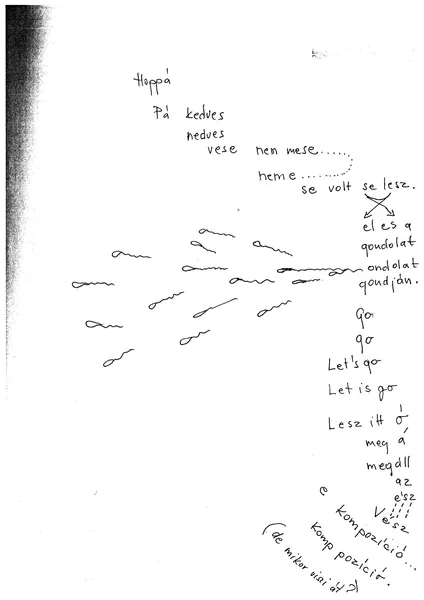 Hoppá
Pá kedves
nedves
vese nem mese......
neme........
se volt se lesz.
el es a
gondolat
ondolat
gondján.
Go
go
Let's go
Let is go
Lesz itt ó
meg á
megáll
az
ész
Vész
e kompozíció...
Komp pozíció.
(de mikor visz át?)